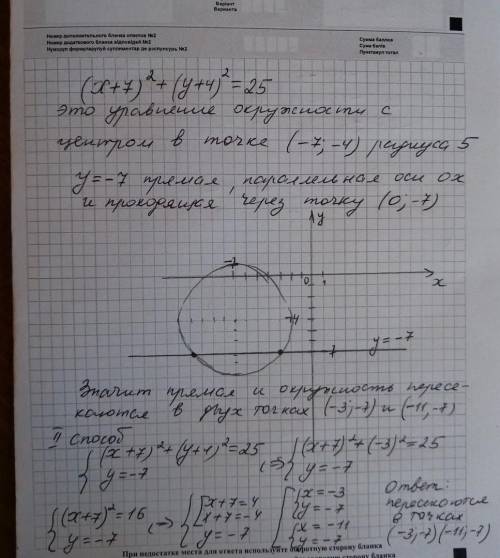 Вариант
Варианта
Номер дополнительного бланка ответов №2
Номер додаткового бланка відповідей №2
Сумма баллов
Сума балів
(x+7)²+(y+4)²=25
это уравнение окружности с
центром в точке (-7;-4) радиуса 5
y=-7 прямая, параллельная оси ох
и проходящая через точку (0;-7)
y
-7
0 1
x
-4
y=-7
-7
Значит прямая и окружность пересе-
каются в двух точках (-3;-7) и (-11,-7)
II способ
{(x+7)²+(y+4)²=25 ⇒ {(x+7)²+(-3)²=25
{y=-7 {y=-7
{(x+7)²=16 ⇒ {[x+7=4 [{x=-3
{y=-7 {[x+7=-4 {y=-7
{y=-7 {x=-11
{y=-7
Ответ:
пересекаются
в точках
(-3;-7) (-11;-7)
При недостатке места для ответа используйте оборотную сторону бланка